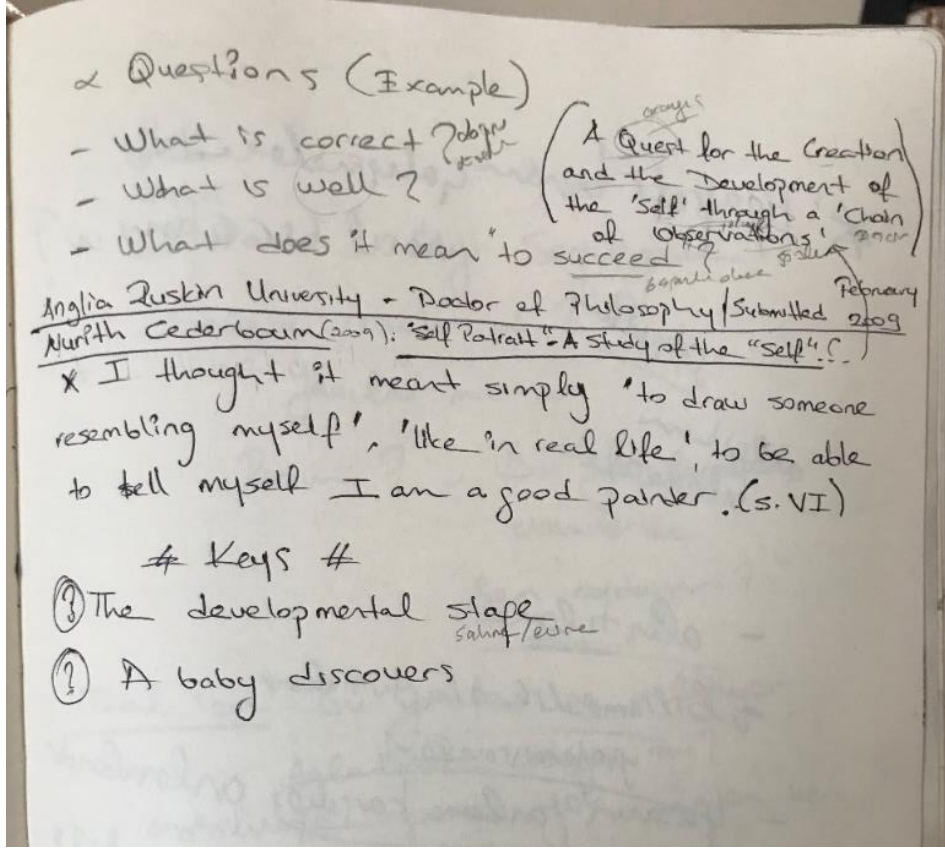 ∝ Questions (Example)
- What is correct? doğru
- What is well?
- What does it mean "to succeed"?
(A Quest for the Creation
arayış
and the Development of
the 'Self' through a 'Chain
of Observations'
February
Anglia Ruskin University - Doctor of Philosophy/Submitted 2009
Nurith Cederboum(2009): "Self Potratt" - A Study of the "Self".(..)
* I thought it meant simply 'to draw someone
resembling myself', 'like in real life', to be able
to tell myself I am a good painter. (s. VI)
# Keys #
(?) The developmental stage
sahne/evre
(?) A baby discovers